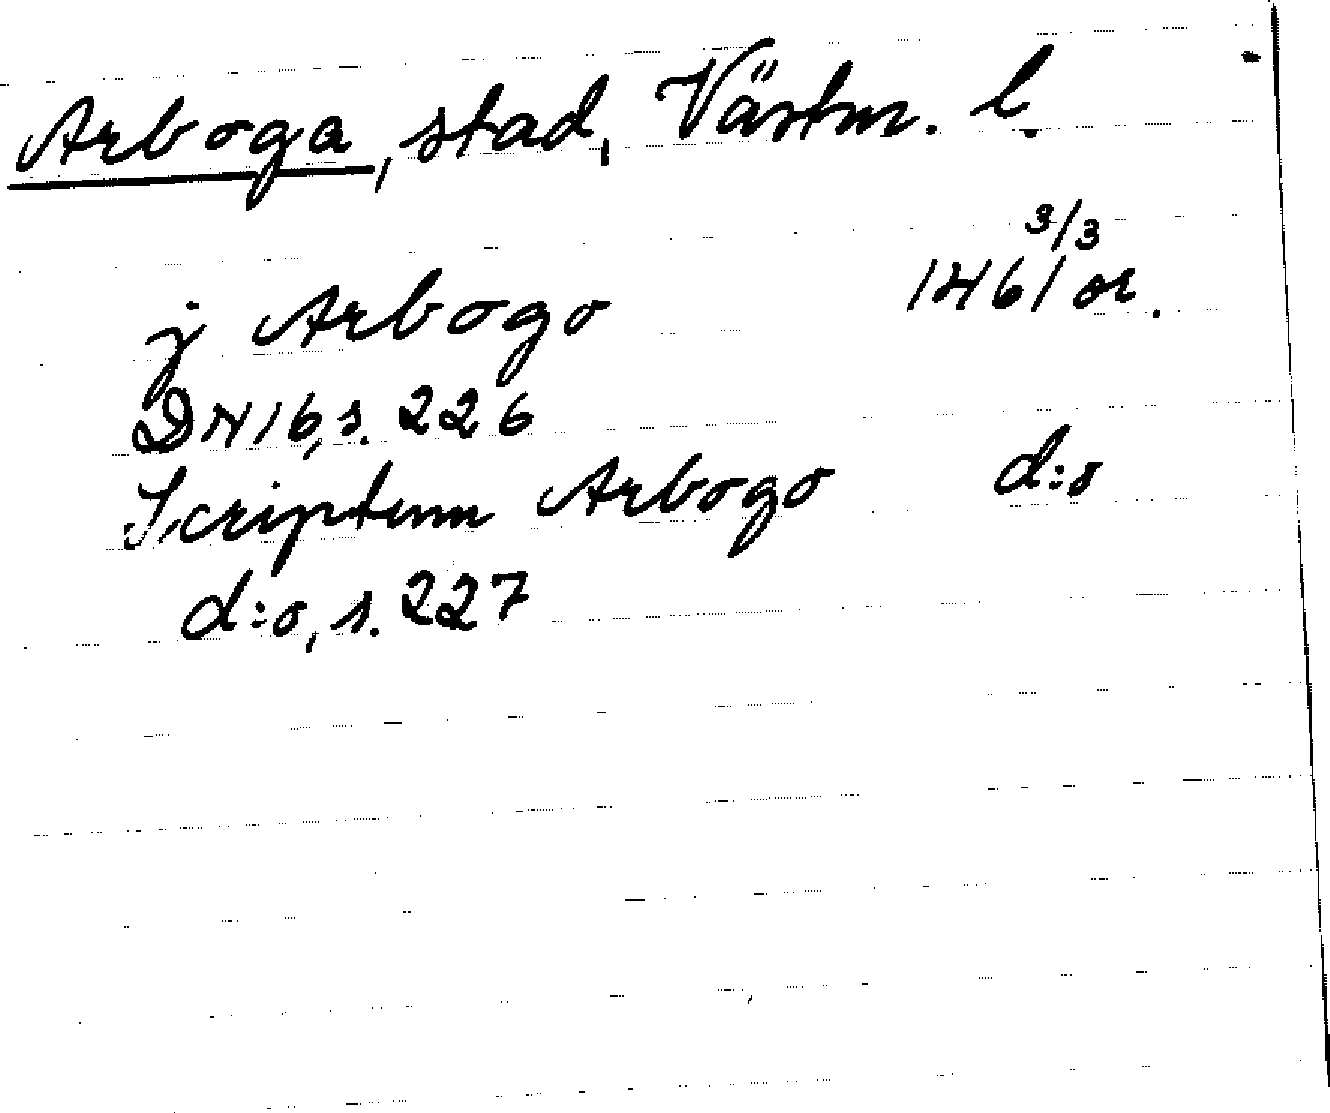 Arboga, stad, Västm. l.
j Arbogo 1461 3/3 or.
DN 16, s. 226
Scriptum Arbogo d:o
d:o, s. 227